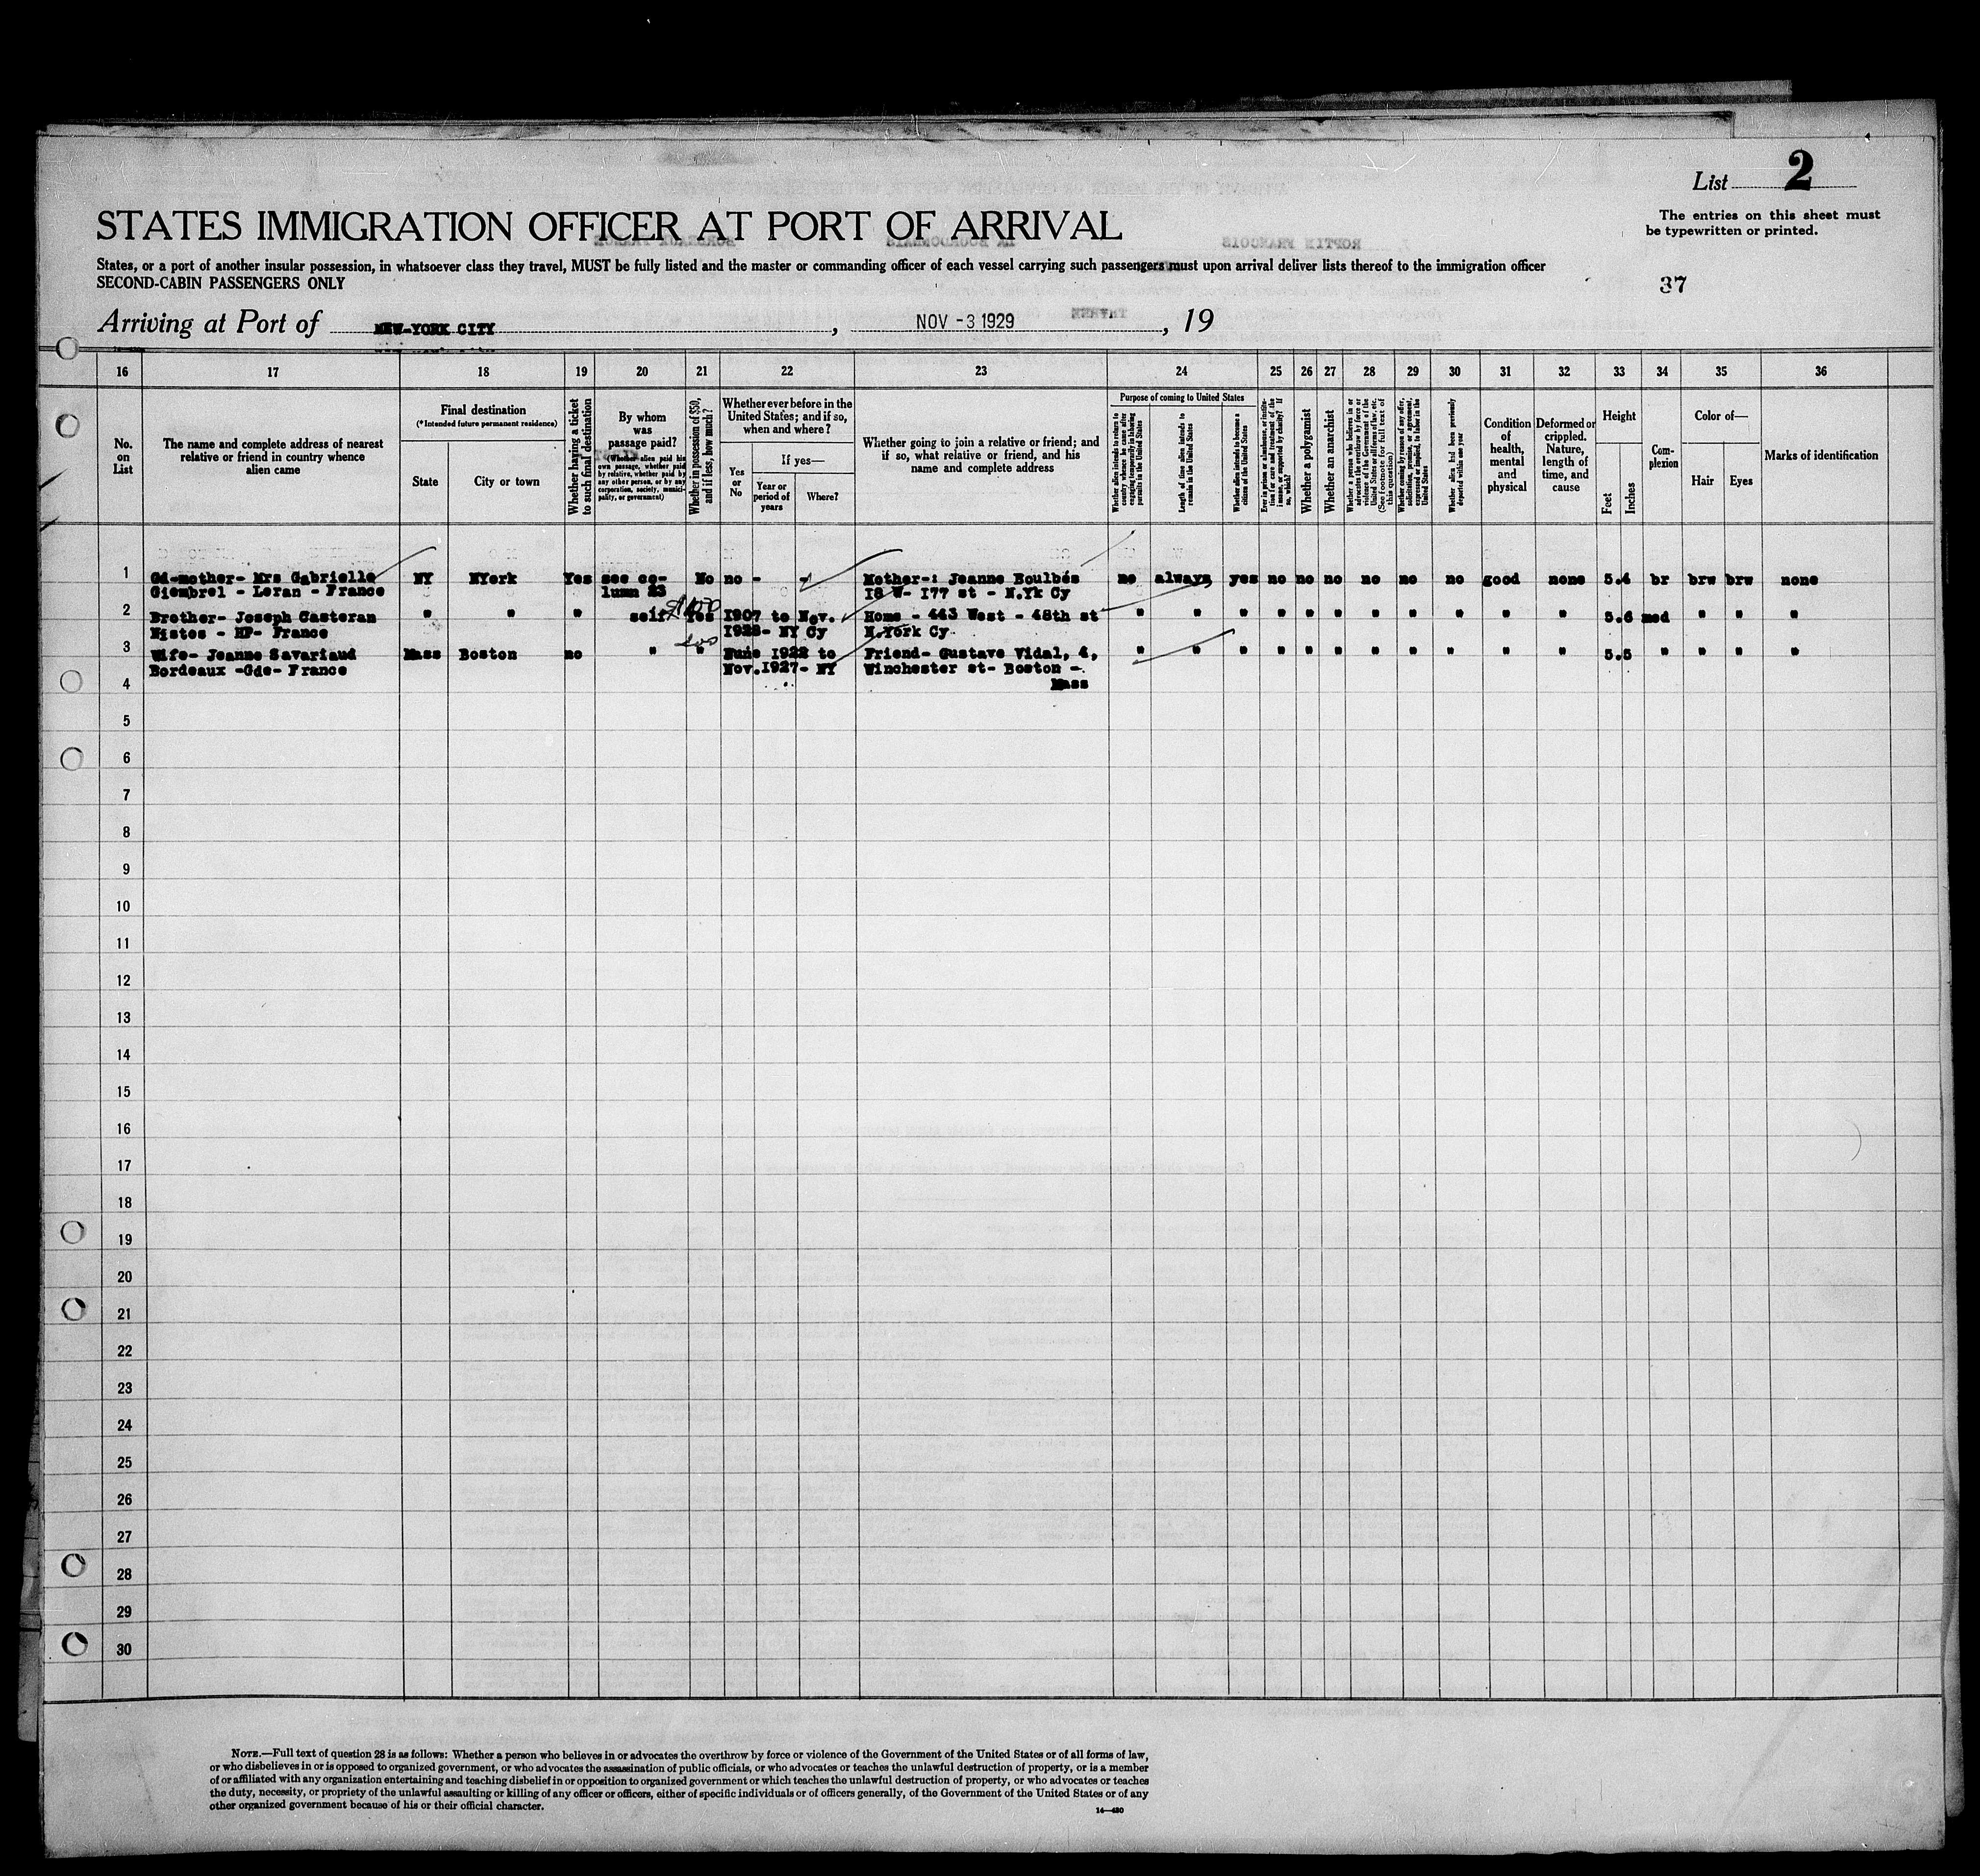 List 2
The entries on this sheet must
be typewritten or printed.
STATES IMMIGRATION OFFICER AT PORT OF ARRIVAL
States, or a port of another insular possession, in whatsoever class they travel, MUST be fully listed and the master or commanding officer of each vessel carrying such passengers must upon arrival deliver lists thereof to the immigration officer
SECOND-CABIN PASSENGERS ONLY
37
Arriving at Port of NEW-YORK CITY, NOV -3 1929, 19
16 17 18 19 20 21 22 23 24 25 26 27 28 29 30 31 32 33 34 35 36
No.
on
List
The name and complete address of nearest
relative or friend in country whence
alien came
Final destination
(*Intended future permanent residence)
State
City or town
Whether having a ticket
to such final destination
By whom
was
passage paid?
(Whether alien paid his
own passage, whether paid
by relative, whether paid by
any other person, or by any
corporation, society, munici-
pality, or government)
Whether in possession of $50,
and if less, how much?
Whether ever before in the
United States; and if so,
when and where?
Yes
or
No
If yes—
Year or
period of
years
Where?
Whether going to join a relative or friend; and
if so, what relative or friend, and his
name and complete address
Purpose of coming to United States
Whether alien intends to return to
country whence he came after
engaging temporarily in laboring
pursuits in the United States
Length of time alien intends to
remain in the United States
Whether alien intends to become a
citizen of the United States
Ever in prison or almshouse, or institu-
tion for care and treatment of the
insane, or supported by charity? If
so, which?
Whether a polygamist
Whether an anarchist
Whether a person who believes in or
advocates the overthrow by force or
violence of the Government of the
United States or all forms of law, etc.
(See footnote for full text of
this question)
Whether coming by reason of any offer,
solicitation, promise, or agreement,
expressed or implied, to labor in the
United States
Whether alien had been previously
deported within one year
Condition
of
health,
mental
and
physical
Deformed or
crippled.
Nature,
length of
time, and
cause
Height
Feet
Inches
Com-
plexion
Color of—
Hair
Eyes
Marks of identification
1 Gd-mother- Mrs Gabrielle NY NYork Yes see co- No no - - Mother-: Jeanne Boulbés no always yes no no no no no no good none 5.4 br brw brw none
Giembrel - Leran - France lumn 23 18 W- 177 st - N.Yk Cy
2 Brother- Joseph Casteran " " " self Yes 1907 to Nov. Home - 443 West - 48th st " " " " " " " " " " " 5.6 med " " "
Nistos - HP- France 1928- NY Cy N.York Cy
3 Wife- Jeanne Savariaud Mass Boston no " " June 1922 to Friend- Gustave Vidal, 4, " " " " " " " " " " " 5.5 " " " "
Bordeaux -Gde- France Nov.1927- NY Winchester st- Boston -
4 Mass
5
6
7
8
9
10
11
12
13
14
15
16
17
18
19
20
21
22
23
24
25
26
27
28
29
30
NOTE.—Full text of question 28 is as follows: Whether a person who believes in or advocates the overthrow by force or violence of the Government of the United States or of all forms of law,
or who disbelieves in or is opposed to organized government, or who advocates the assassination of public officials, or who advocates or teaches the unlawful destruction of property, or is a member
of or affiliated with any organization entertaining and teaching disbelief in or opposition to organized government or which teaches the unlawful destruction of property, or who advocates or teaches
the duty, necessity, or propriety of the unlawful assaulting or killing of any officer or officers, either of specific individuals or of officers generally, of the Government of the United States or of any
other organized government because of his or their official character.
14—430